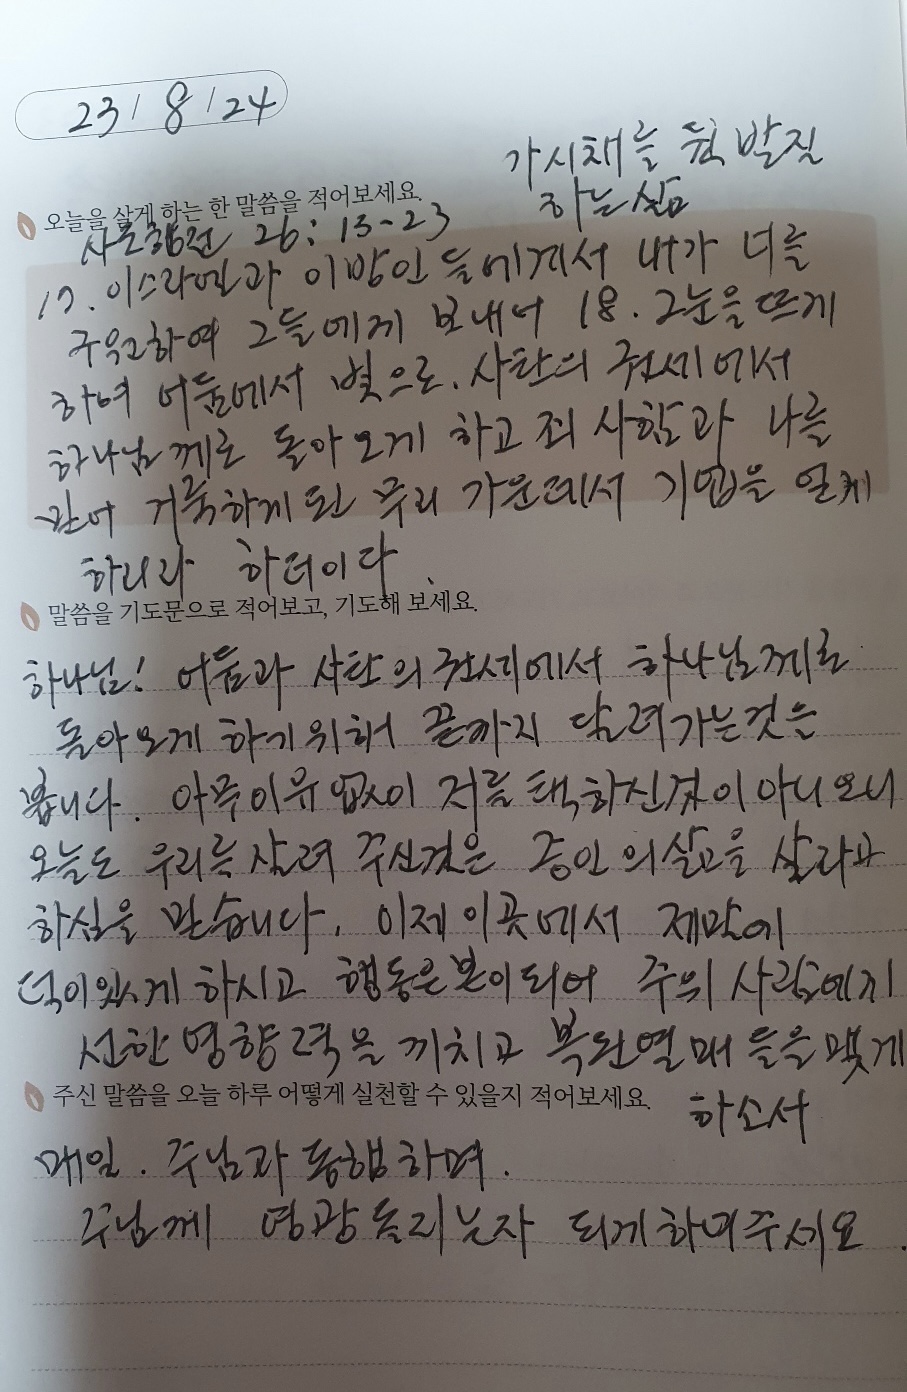 23/8/24
가시채를 뒷발질
하는 삶
오늘을 살게 하는 한 말씀을 적어보세요.
사도행전 26:13-23
17. 이스라엘과 이방인들에게서 내가 너를
구원하여 그들에게 보내어 18. 그눈을 뜨게
하여 어둠에서 빛으로, 사탄의 권세에서
하나님께로 돌아오게 하고 죄 사함과 나를
믿어 거룩하게 된 무리 가운데서 기업을 얻게
하리라 하더이다.
말씀을 기도문으로 적어보고, 기도해 보세요.
하나님! 어둠과 사탄의 권세에서 하나님께로
돌아오게 하기위해 끝까지 달려가는것을
봅니다. 아무이유 없이 저를 택하신것이 아니오니
오늘도 우리를 살려 주신것은 증인의삶을 살라고
하심을 믿습니다. 이제 이곳에서 제말에
덕이있게 하시고 행동은본이되어 주의 사람에게
선한 영향력을 끼치고 복된열매 들을 맺게
하소서
주신 말씀을 오늘 하루 어떻게 실천할 수 있을지 적어보세요.
매일. 주님과 동행하며.
주님께 영광돌리는자 되게하여주세요.